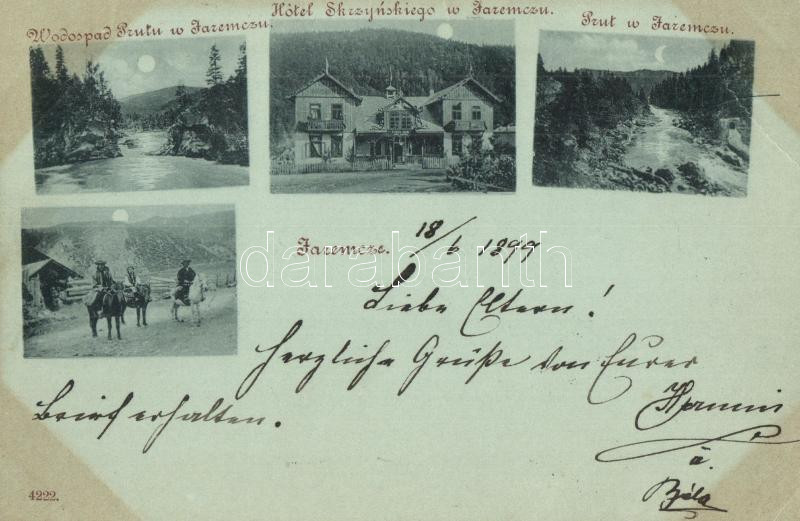 Wodospad Prutu w Jaremczu.
Hôtel Skrzyńskiego w Jaremczu.
Prut w Jaremczu.
Jaremcze.
18/6 1899
darabanth.com
Liebe Eltern!
Herzliche Grüße von Eurer
Hermin
Brief erhalten.
à
Béla
4222.